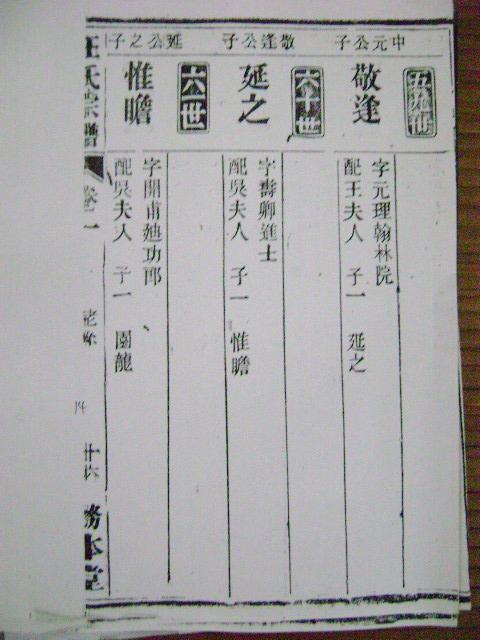 中元公子
敬逢
字元理翰林院
配王夫人 子一 延之
六十世
敬逢公子
延之
字壽卿進士
配吳夫人 子一 惟瞻
六世
延公之子
惟瞻
字開甫廸功郎
配吳夫人 子一 園龍
汪氏宗譜 卷二
十六
務本堂